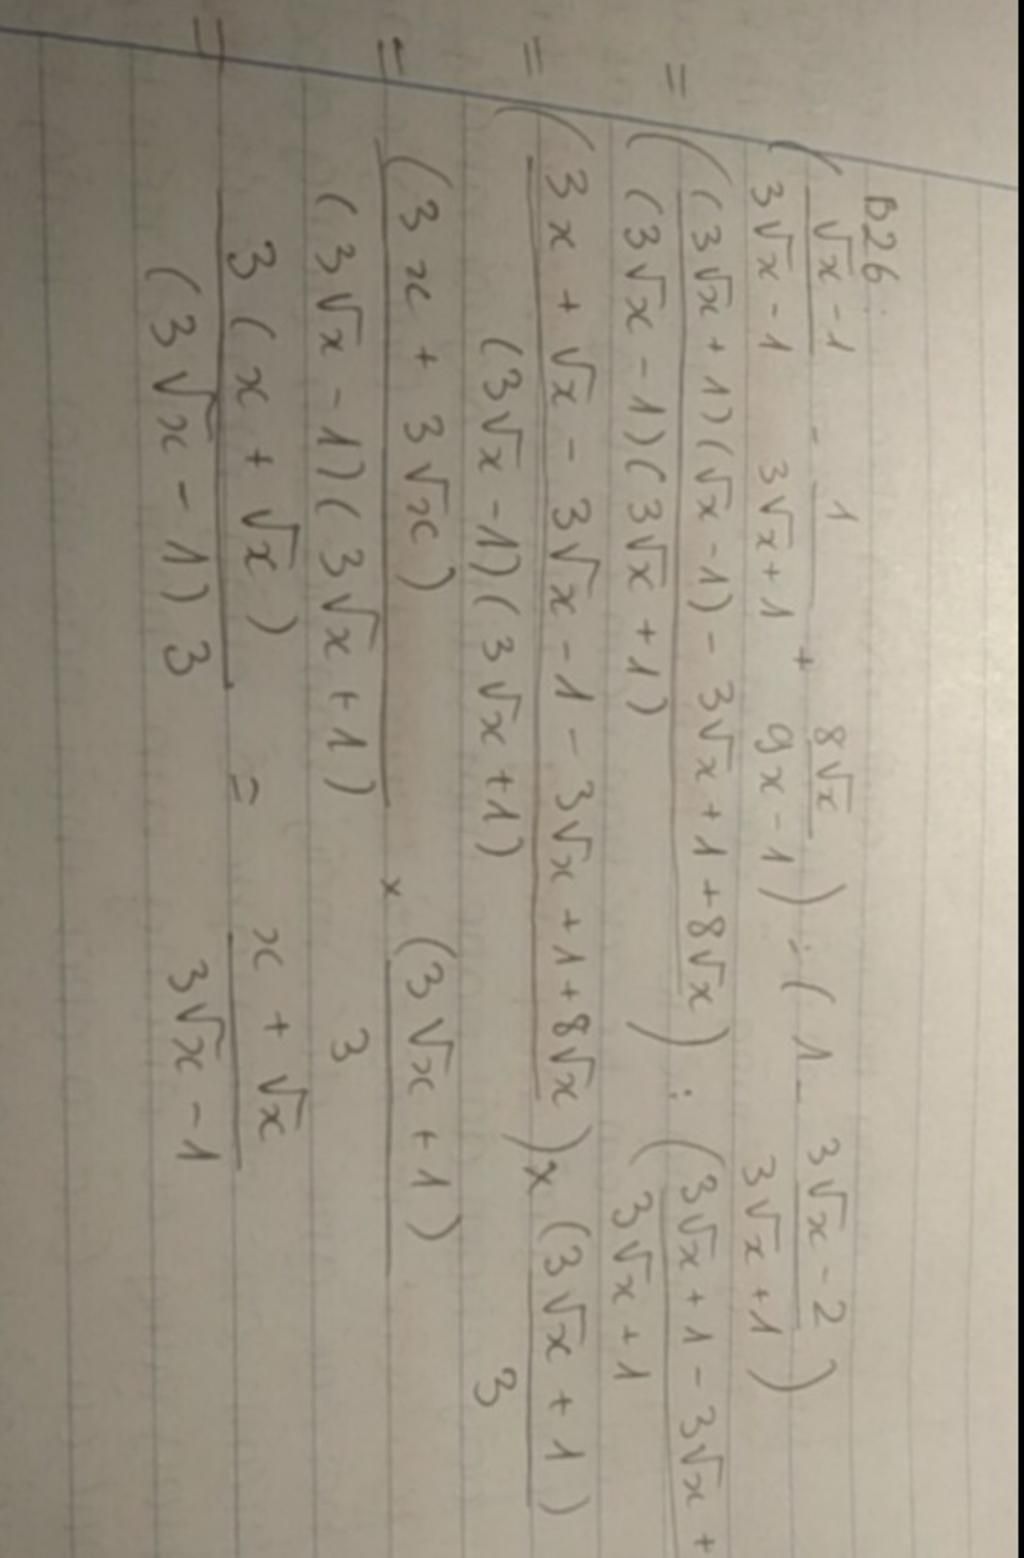 B26:
( (√x - 1)/(3√x - 1) - 1/(3√x + 1) + 8√x/(9x - 1) ) : ( 1 - (3√x - 2)/(3√x + 1) )
= ( ((3√x + 1)(√x - 1) - 3√x + 1 + 8√x)/((3√x - 1)(3√x + 1)) ) : ( (3√x + 1 - 3√x +)/(3√x + 1)
= ( (3x + √x - 3√x - 1 - 3√x + 1 + 8√x)/((3√x - 1)(3√x + 1)) ) x (3√x + 1)/3
= (3x + 3√x)/((3√x - 1)(3√x + 1)) x (3√x + 1)/3
= 3(x + √x)/((3√x - 1)3) = (x + √x)/(3√x - 1)